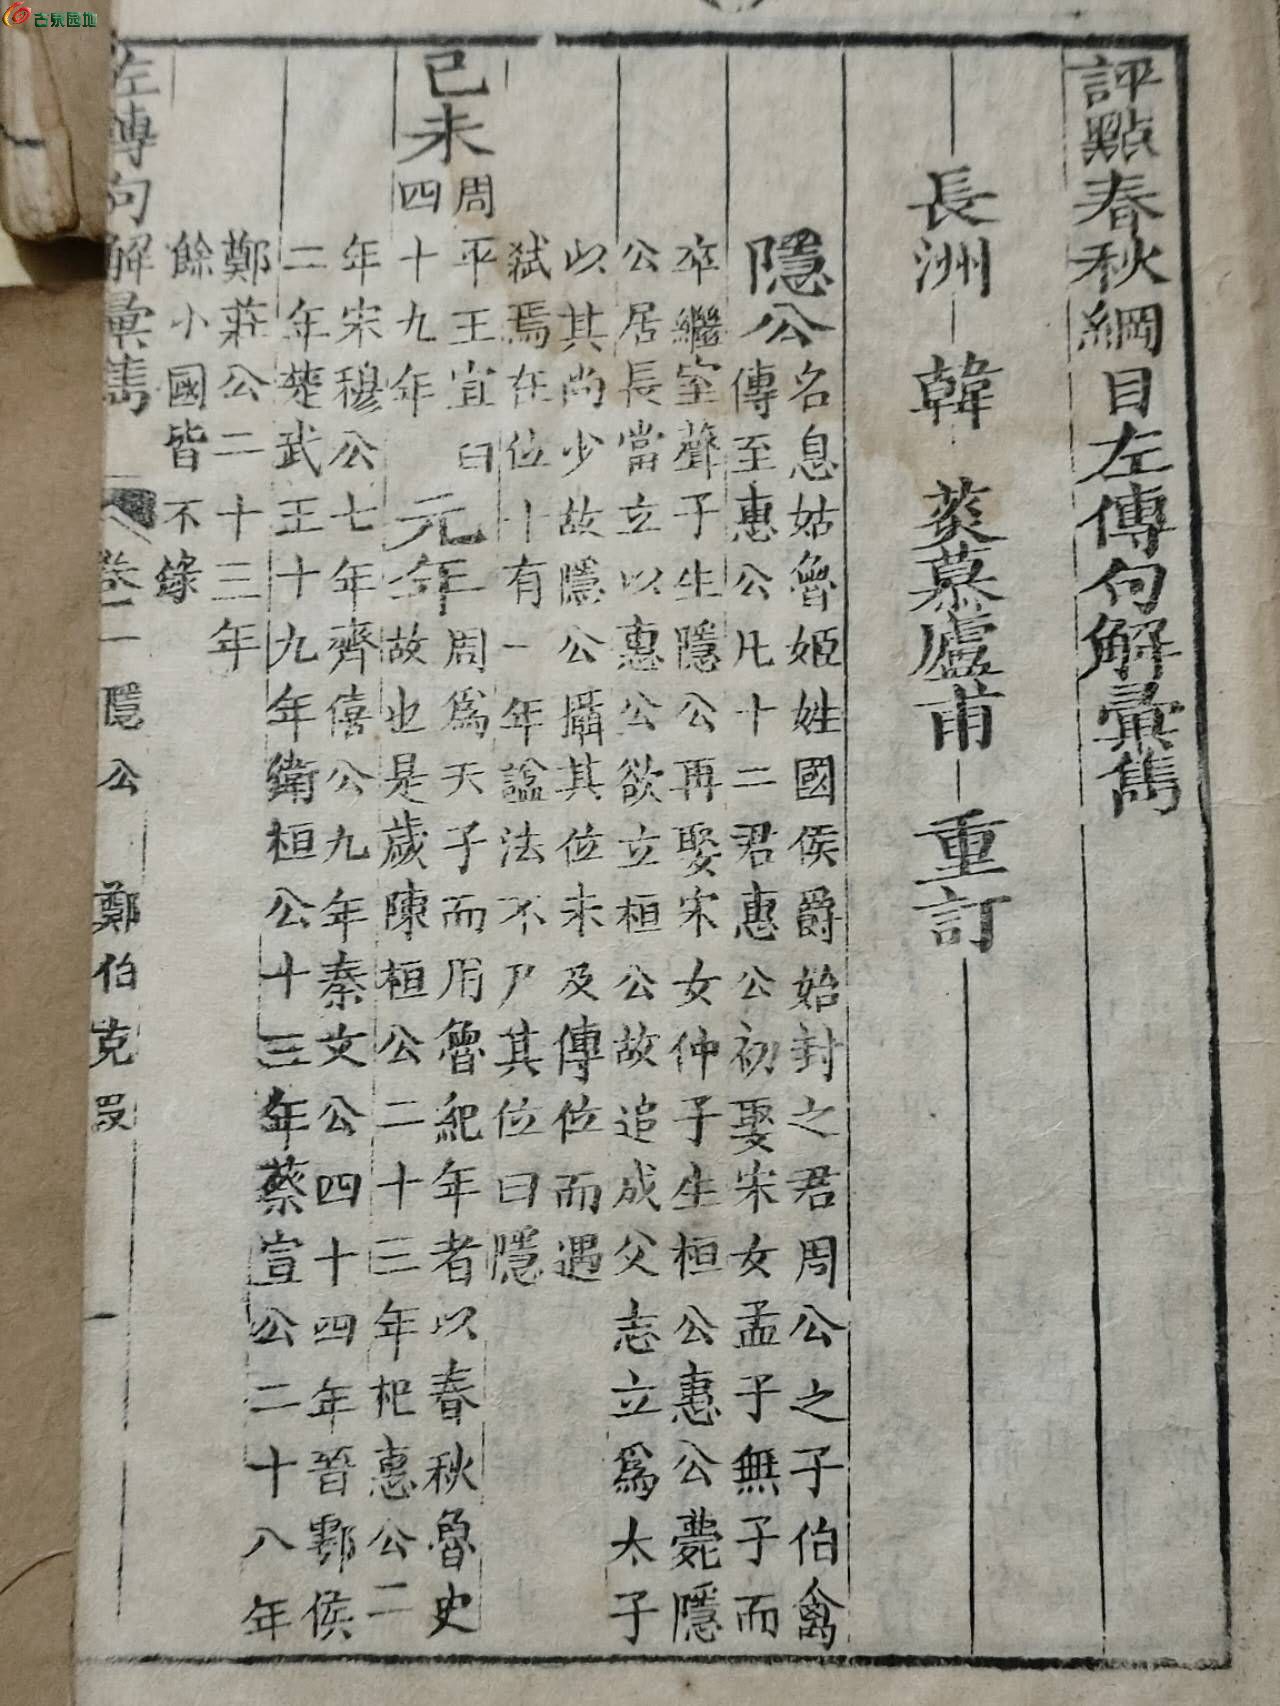 古泉园地
評點春秋綱目左傳句解彙雋
長洲 韓 菼慕廬甫 重訂
隱公
名息姑魯姬姓國侯爵始封之君周公之子伯禽
傳至惠公凡十二君惠公初娶宋女孟子無子而
卒繼室聲子生隱公再娶宋女仲子生桓公惠公薨隱
公居長當立以惠公欲立桓公故追成父志立爲太子
以其尚少故隱公攝其位未及傳位而遇
弑焉在位十有一年諡法不尸其位曰隱
己未
周平王宜臼
四十九年
元年
周爲天子而用魯紀年者以春秋魯史
故也是歲陳桓公二十三年杞惠公二
年宋穆公七年齊僖公九年秦文公四十四年晉鄂侯
二年楚武王十九年衛桓公十三年蔡宣公二十八年
鄭莊公二十三年
餘小國皆不錄
左傳句解彙雋 卷一 隱公 鄭伯克段 一